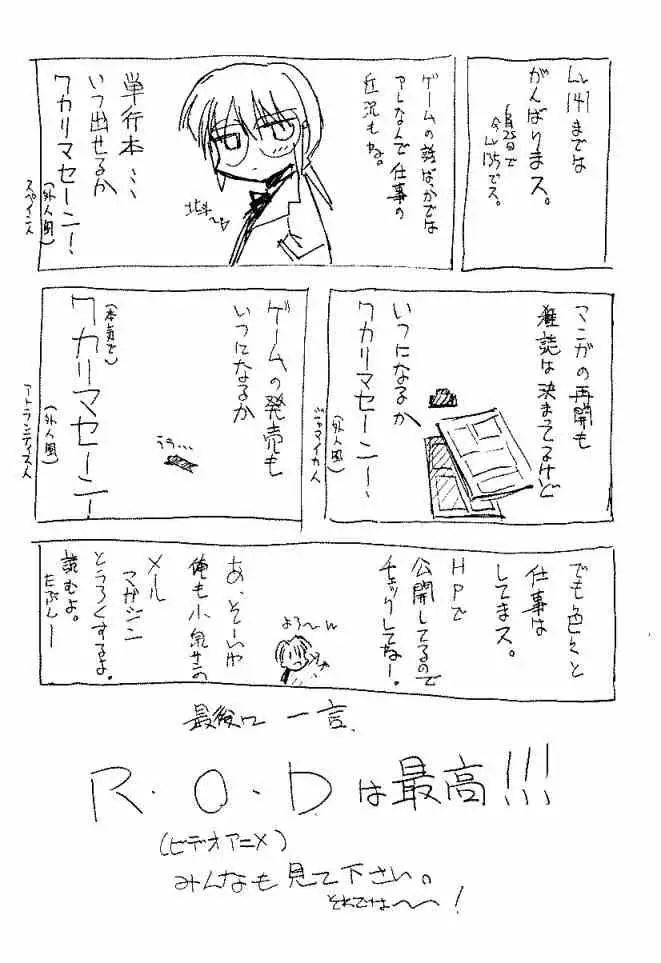 Lv141までは
がんばりまス。
ゲームの話ばっかでは
アレなんで仕事の
近況もね。
単行本…
いつ出せるか
ワカリマセーン!
(外人風)
スペイン人
マンガの再開も
雑誌は決まってるけど
いつになるか
ワカリマセーン!
(外人風)
ジャマイカ人
ゲームの発売も
いつになるか
ワカリマセーン!
(本気で)
(外人風)
アトランティス人
でも色々と
仕事は
してまス。
HPで
公開してるので
チェックしてねー!
よろ〜w
あ、そーいや
俺も小泉さんの
メール
マガジン
とうろくするよ。
読むよ。
たぶんー
最後に一言、
R・O・Dは最高!!!
(ビデオアニメ)
みんなも見て下さい。
それでは〜〜!